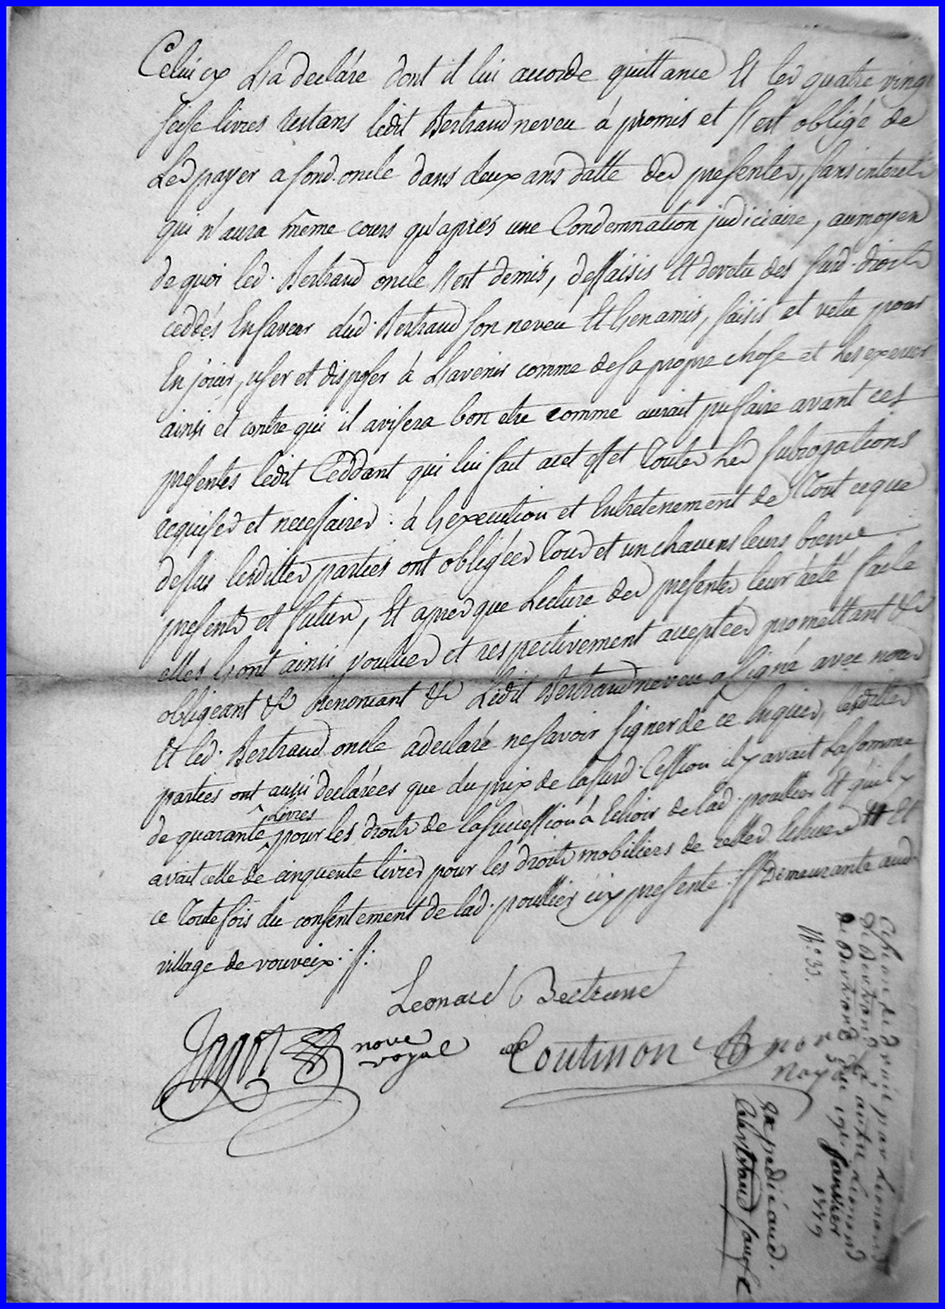 Celui cy L'a declaré dont il lui accorde quittance Et les quatre vingt
seise livres restans ledit Bertrand neveu à promis et s'est obligé de
Les payer a son d. oncle dans deux ans datte des presentes, sans interets
qui n'aura même cours qu'apres une Condemnation judiciaire, aumoyen
de quoi led. Bertrand oncle s'est demis, dessaisis Et devetu des susd. droits
ceddés Enfaveur aud. Bertrand son neveu Et L'en a mis, saisis et vetu pour
En jouir, user et disposer à L'avenir comme de sa propre chose et Les exercer
ainsi et contre qui il avisera bon etre comme aurait pu faire avant ces
presentes ledit Ceddant qui lui fait acet effet Toutes Les subrogations
requises et necessaires. à L'execution et Entretenement de Tout ceque
dessus lesdittes parties ont obligées Tous et un chacuns leurs biens
presents et futurs, Et apres que Lecture des presentes leur à été faite
elles L'ont ainsi voulues et respectivement acceptées promettant &c
obligeant &c Renonçant &c Ledit Bertrand neveu a signé avec nous
Et led. Bertrand oncle a declaré ne savoir signer de ce Enquis, lesdittes
parties ont aussi declarées que du prix de lasusd. Cession il y avait Lasomme
de quarante livres pour les droits de lasuccession à Echoir de lad. poullier Et qu'il y
avait celle de cinquente livres pour les droits mobiliers de celles Echues Et
ce Toutefois du consentement de lad. poullier icy presente. // Demeurante aud.
village de vouveix. //.
Leonard Bertrand
Jagot nore royal
Coutinon nore royal
Cession de droits par Leonard
Bertrand à autre Leonard
Bertrand Du 9
Janvier 1779
N.° 33.
Expedié aud.
Bertrand